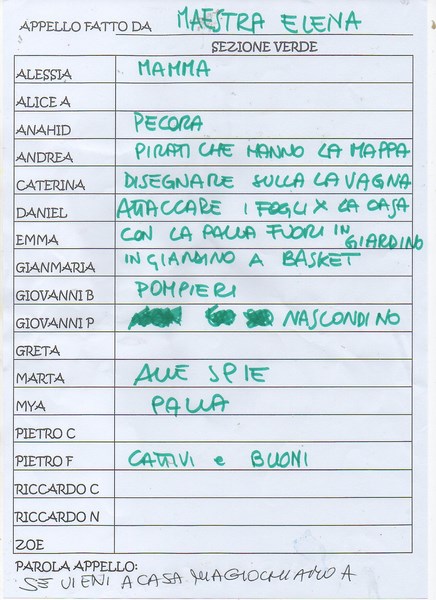 APPELLO FATTO DA MAESTRA ELENA
SEZIONE VERDE
ALESSIA MAMMA
ALICE A
ANAHID PECORA
ANDREA PIRATI CHE HANNO LA MAPPA
CATERINA DISEGNARE SULLA LAVAGNA
DANIEL ATTACCARE I FOGLI X LA CASA
EMMA CON LA PALLA FUORI IN GIARDINO
GIANMARIA IN GIARDINO A BASKET
GIOVANNI B POMPIERI
GIOVANNI P NASCONDINO
GRETA
MARTA ALLE SPIE
MYA PALLA
PIETRO C
PIETRO F CATTIVI e BUONI
RICCARDO C
RICCARDO N
ZOE
PAROLA APPELLO:
SE VIENI A CASA MIA GIOCHIAMO A